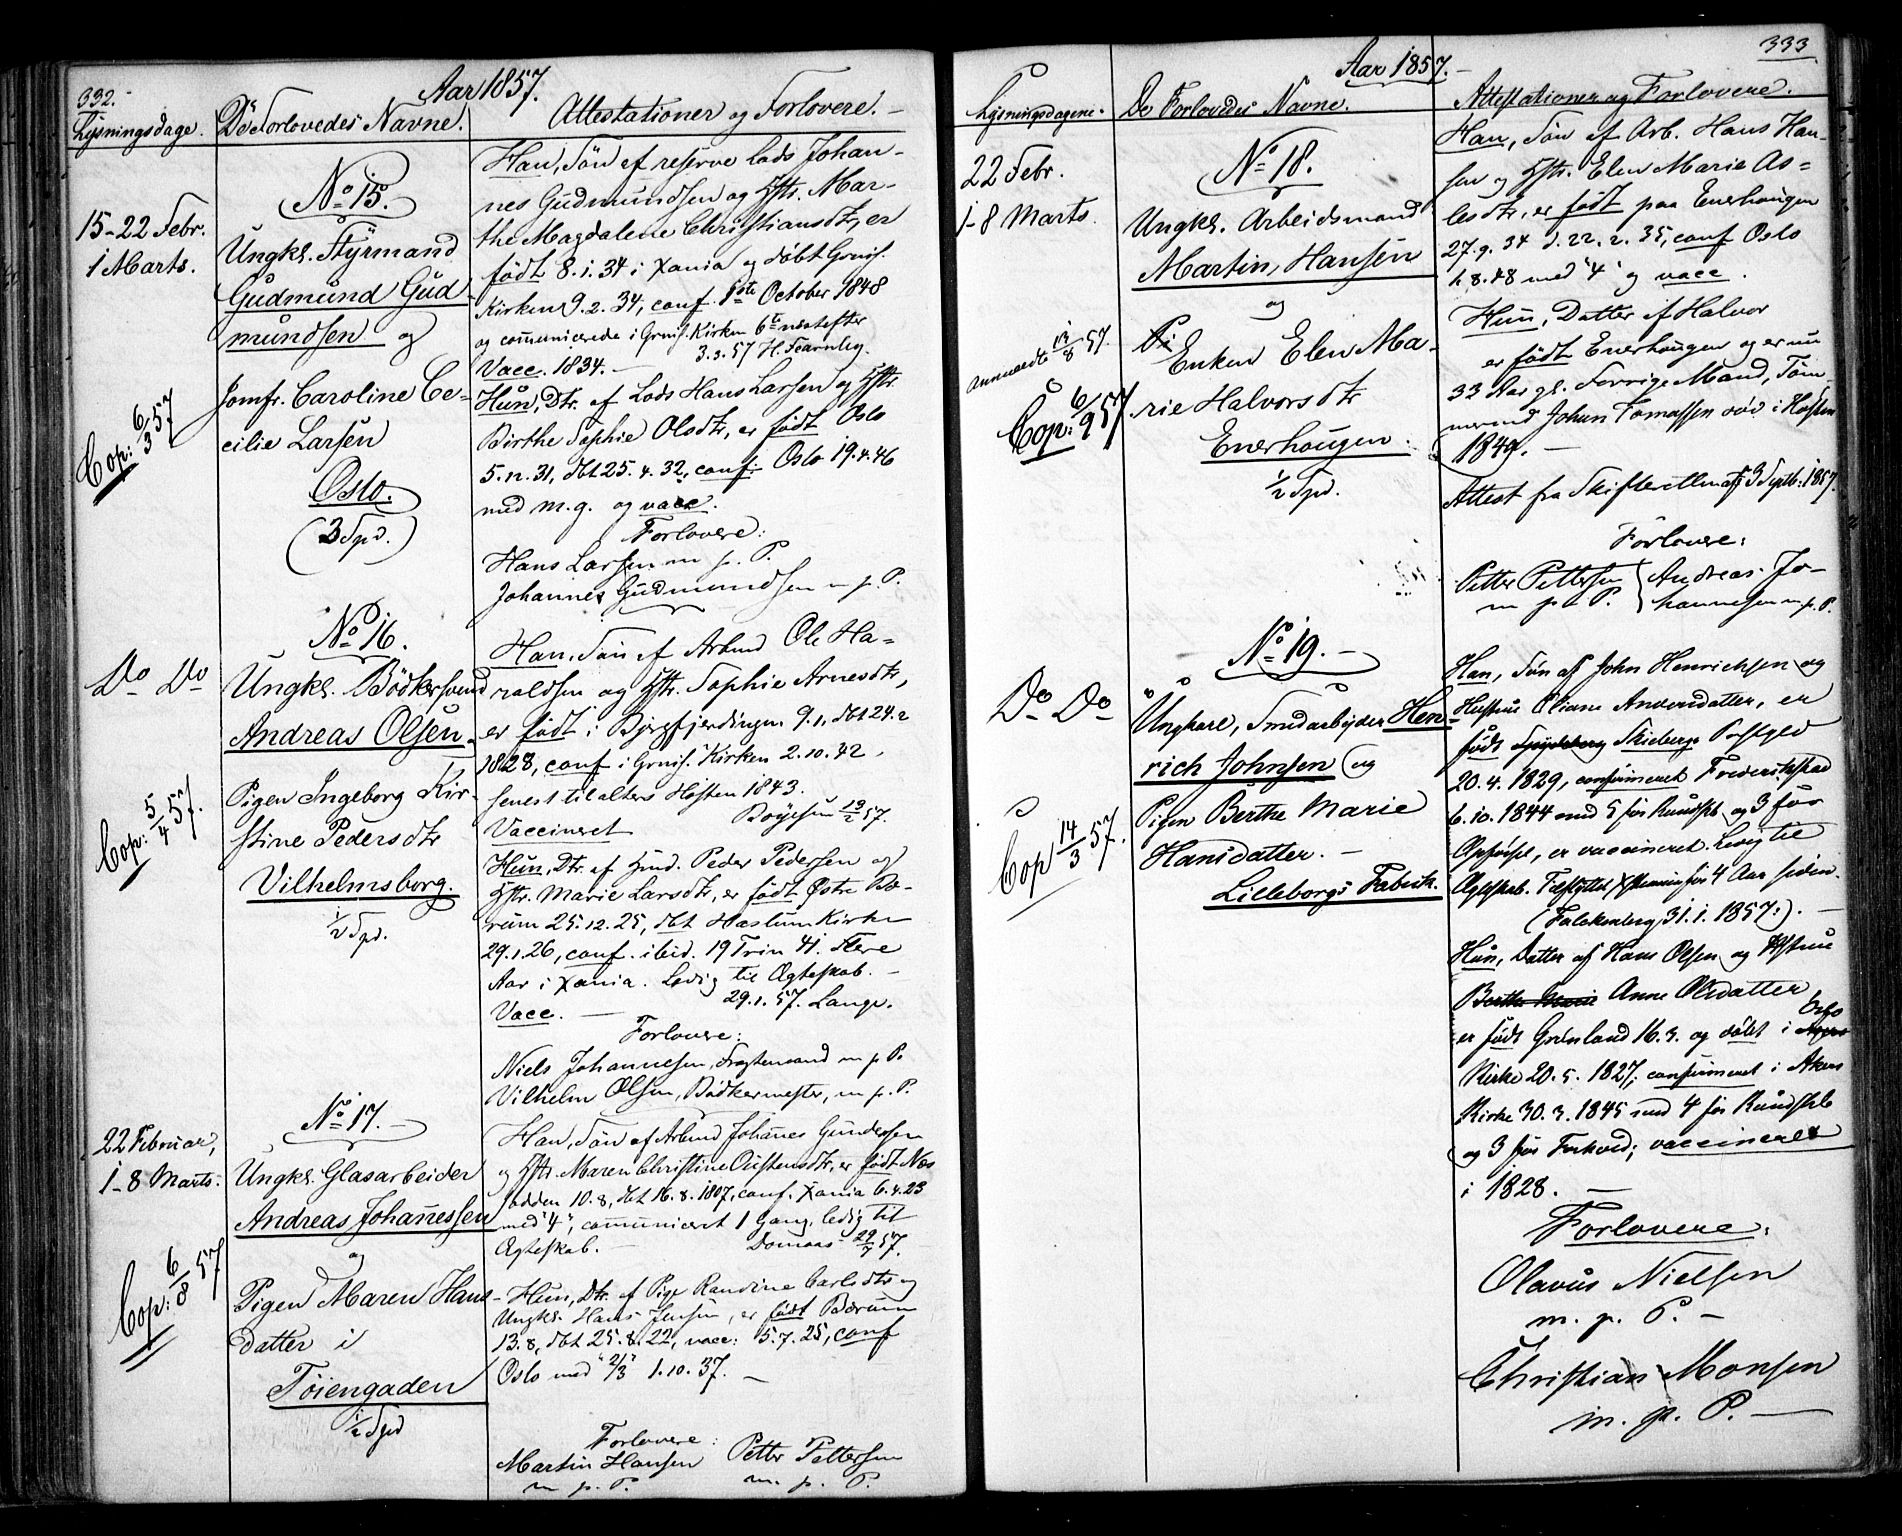 332.
Aar 1857.
Lysningsdage. De Forlovedes Navne. Attestationer og Forlovere.
15-22 Febr.
1 Marts.
Cop: 6/3 57
No 15.
Ungkl. Styrmand
Gudmund Gud
mundsen og
Jomfr. Caroline Ce-
cilie Larsen
Oslo.
(3 Spd.)
Han, Søn af reserve lods Johan-
nes Gudmundsen og Hstr. Mar-
the Magdalene Christiansdtr, er
født 8.1.34 i Xania og døbt Gnis.
Kirken 9.2.34, conf. 1ste October 1848
og communicerede i Grnis. Kirken 6te næstefter
3.3.57 H. Fearnley.
Vacc. 1834.
Hun, Dtr. af Lods Hans Larsen og Hstr.
Birthe Sophie Olsdtr, er født Oslo
5.12.31, dbt 25.4.32, conf: Oslo 19.4.46
med m.g. og vacc.
Forlovere:
Hans Larsen m. p. P.
Johannes Gudmundsen m. p. P.
Do Do
Cop: 5/4 57.
No 16.
Ungkl. Bödkersvend
Andreas Olsen.
Pigen Ingeborg Kir-
stine Pedersdtr
Vilhelmsborg.
1/2 Spd.
Han, Søn af Arbmd Ole Ha-
raldsen og Hstr. Sophie Arnesdtr,
er født i Bjergfjerdingen 9.1, dbt 24.2
1828, conf i Grnis. Kirken 2.10.42,
senest til alters Høsten 1843.
Vaccineret Bøyesen 19/2 57.
Hun, Dtr. af Hmd. Peder Pedersen og
Hstr. Marie Larsdtr, er født Østre Bæ-
rum 25.12.25, dbt Haslum Kirke
29.1.26, conf. ibid. 19 Trin 41. Flere
Aar i Xania. Ledig til Ægteskab.
29.1.57. Lange.
Vacc.
Forlovere:
Niels Johannesen, Fragtemand m. p. P.
Vilhelm Olsen, Bödkermester, m. p. P.
22 Februar,
1-8 Marts:
Cop: 6/8 57
No 17.
Ungkl. Glasarbeider
Andreas Johanessen
og
Pigen Maren Hans
datter i
Töiengaden
1/2 Spd
Han, Søn af Arbmd Johanes Gundersen
og Hstr. Maren Christine Oustensdtr, er født Næs
odden 10.8, dbt 16.8.1807, conf. Xania 6.4.23
med "4", communiceret 1 Gang, ledig til
Ægteskab. Domaas 29/7 57.
Hun, Dtr. af Pige Randine Carlsdtr og
Ungkl. Hans Jensen, er født Bærum
13.8, dbt 25.8.22, vacc: 5.7.25, conf
Oslo med "2/3" 1.10.37.
Forlovere:
Martin Hansen Petter Pettersen
m. p. P. m. p. P.
333
Aar 1857.
Lysningsdagene. De Forlovedes Navne. Attestationer og Forlovere.
22 Febr.
1-8 Marts.
anmeldt 13/8 57.
Cop: 6/9 57
No 18.
Ungkl. Arbeidsmand
Martin, Hansen
og
Pi
Enken Elen Ma-
rie Halvorsdtr
Enerhaugen.
1/2 Spd.
Han, Søn af Arb. Hans Han-
sen og Hstr. Elen Marie As-
lesdtr, er født paa Enerhaugen
27.9.34 d. 22.2.35, conf Oslo
1.8.48 med "4" og vacc.
Hun, Datter af Halvor
er født Enerhaugen og er nu
33 Aar gl. Forrige Mand, Töm
mermd Johan Tomassen död i Høsten
1849.
Attest fra Skifteretten af 3 Septb: 1857.
Forlovere:
Petter Pettersen Andreas Jo-
m. p. P. hannesen m. p. P.
Do Do
Cop 14/3 57.
No 19.
Ungkarl, Smedarbejder Hen-
rich Johnsen og
Pigen Berthe Marie
Hansdatter.
Lilleborgs Fabrik.
Han, Søn af John Henrichsen og
Hustrue Oliane Andersdatter, er
født Spydeberg Skiebergs Præstgjd
20.4.1829, confirmeret Frederikstad
6.10.1844 med 5 for Kundskb. og 3 for
Opførsel, er vaccineret. Ledig til
Ægteskab. Tilflyttet Xstiania for 4 Aar siden.
(Falckenberg 31.1.1857:).
Hun, Datter af Hans Olsen og Hstrue
Berthe Marie Anne Olsdatter
er født Grønland 16.3. og døbt i Agers Oslo
Kirke 20.5.1827; confirmeret i Akers
Kirke 30.3.1845 med 4 for Kundskb
og 3 for Forhold; vaccineret
i 1828.
Forlovere:
Olavus Nielsen
m. p. P.
Christian Monsen
m. p. P.